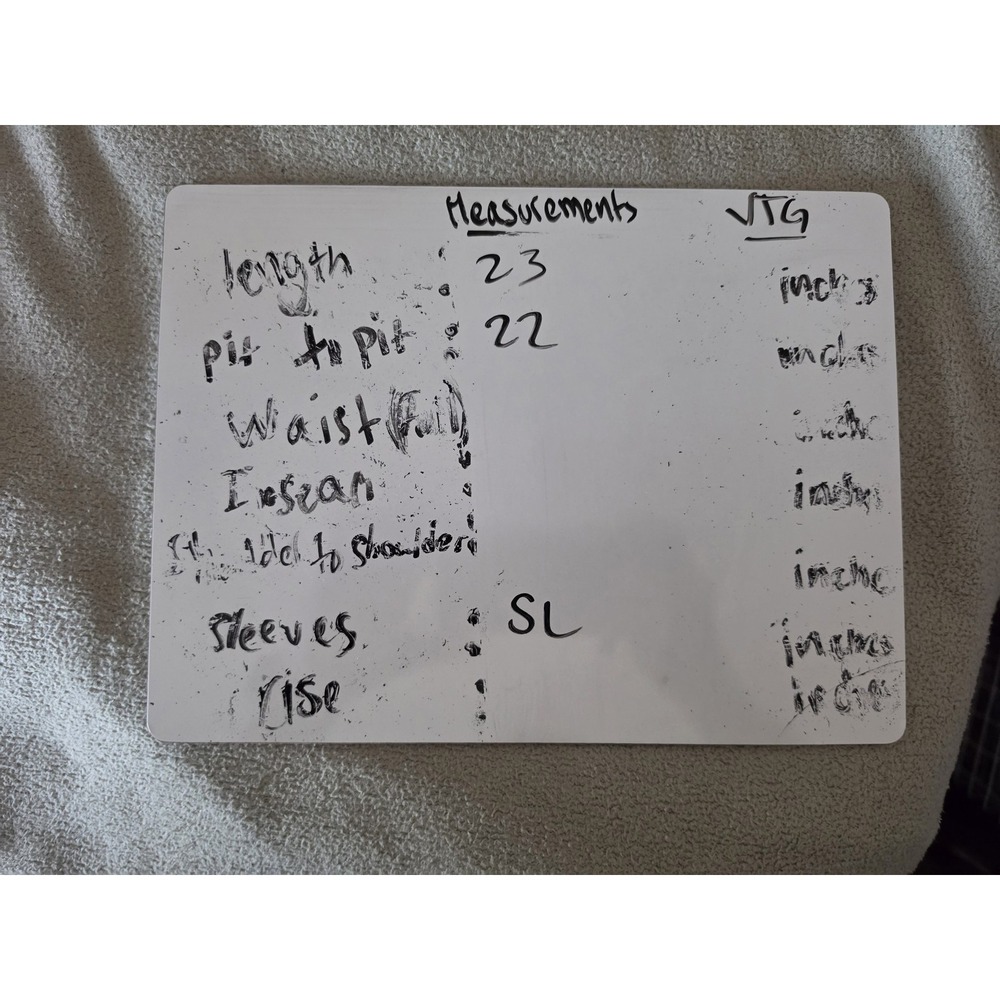 Measurements VTG
length : 23 inches
pit to pit : 22 inches
Waist (Full) : inche
Inseam : inches
Shoulder to shoulder : inche
sleeves : SL inches
rise : inches